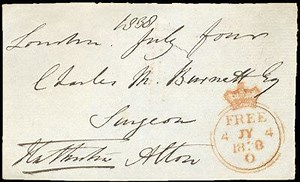 1838
London July four
Charles M. Burnett Esq
Surgeon
Hatherton Alton
FREE
4 JY 4
1838